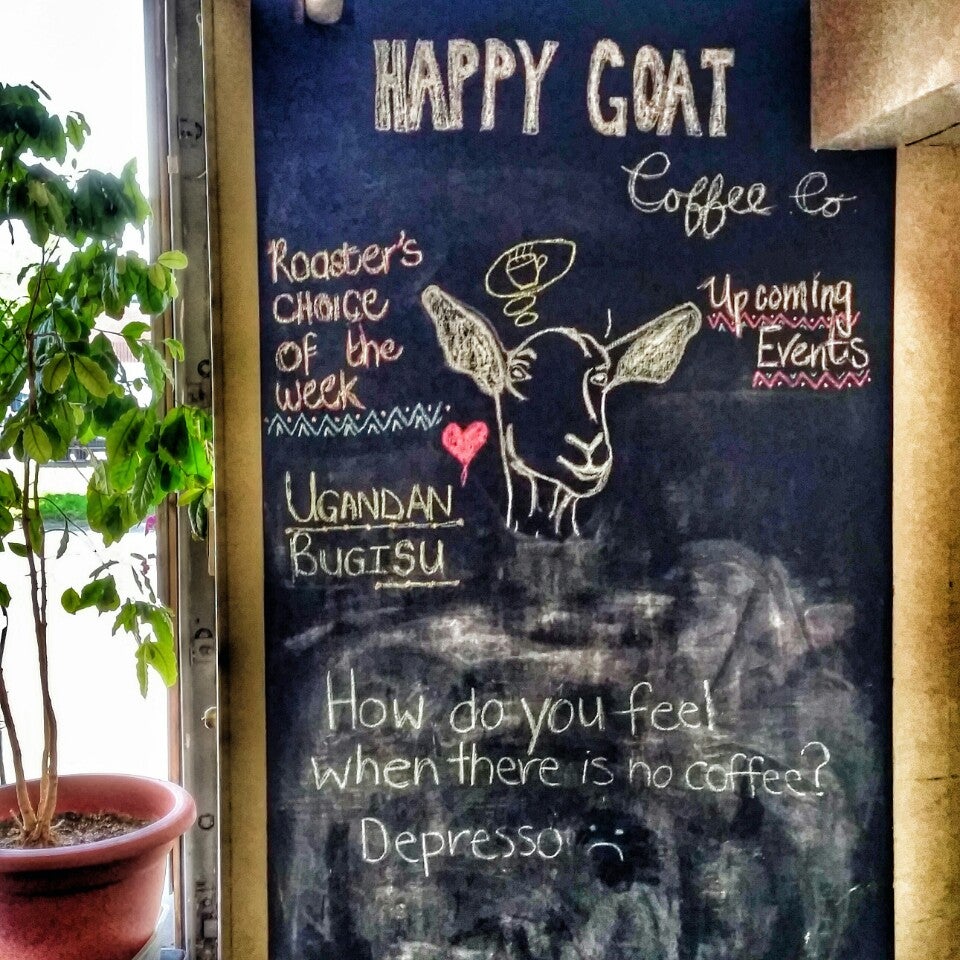 HAPPY GOAT
Coffee Co
Roaster's
CHOICE
of the
week
UGANDAN
BUGISU
Upcoming
Events
How do you feel
when there is no coffee?
Depresso :(